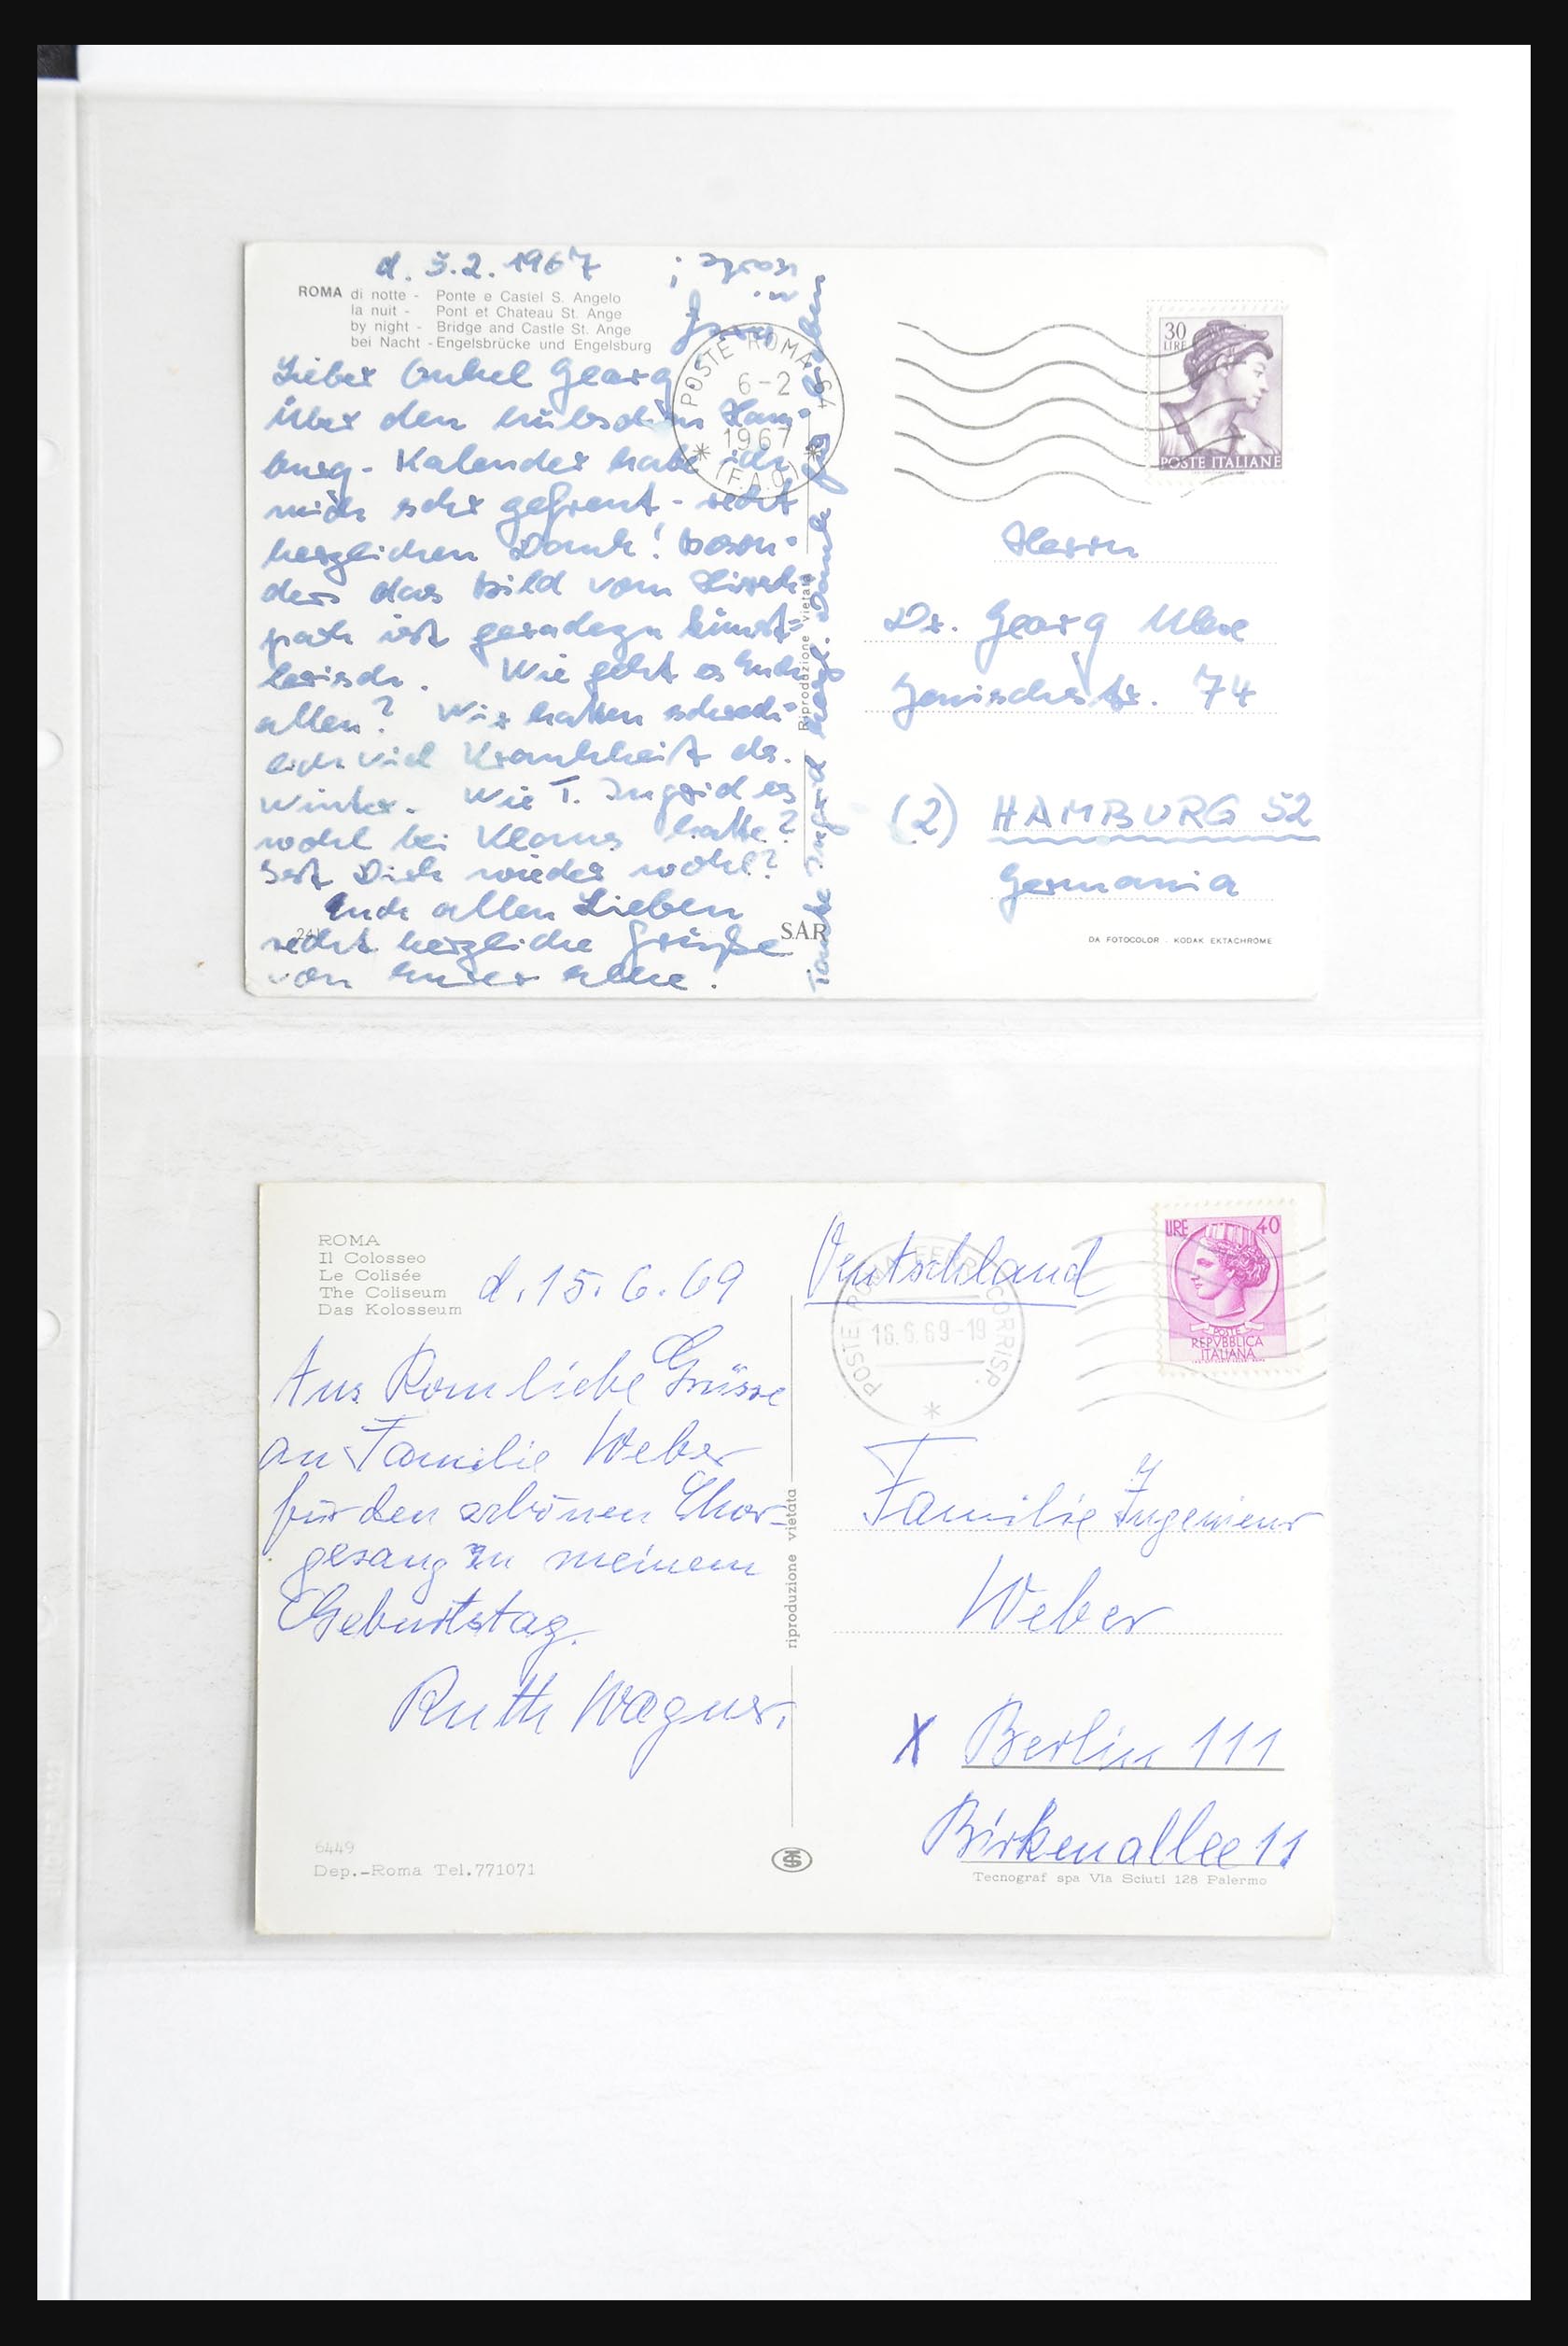 d. 5.2.1967
ROMA di notte - Ponte e Castel S. Angelo
la nuit - Pont et Chateau St. Ange
by night - Bridge and Castle St. Ange
bei Nacht - Engelsbrücke und Engelsburg
Lieber Onkel Georg
Über den hübschen Ham-
burg-Kalender habe ich
mich sehr gefreut - recht
herzlichen Dank! Beson-
ders das Bild vom Hirsch
park ist geradezu künst-
lerisch. Wie geht es Euch
allen? Wir hatten schreck-
lich viel Krankheit ds.
Winter. Wie T. Ingrid es
wohl bei Klaus hatte?
Seit Dich wieder wohl?
Euch allen Lieben
recht herzliche Grüße
von Eurer
Tante Ingrid herzl. Dank für
Riproduzione vietata
S.A.R
POSTE ROMA 94
6-2
1967
(F.A.O.)
30
LIRE
POSTE ITALIANE
Herrn
Dr. Georg
Jenischstr. 74
(2) HAMBURG 52
Germania
DA FOTOCOLOR . KODAK EKTACHROME
ROMA
Il Colosseo
Le Colisée
The Coliseum
Das Kolosseum
d. 15.6.69
Aus Rom liebe Grüsse
an Familie Weber
für den schönen Chor-
gesang zu meinem
Geburtstag.
Ruth Wagner.
6449
Dep.-Roma Tel.771071
riproduzione vietata
Deutschland
POSTE ROMA FERR. CORRISP.
16.6.69-19
LIRE 40
POSTE
REPVBBLICA
ITALIANA
Familie Ingenieur
Weber
X Berlin 111
Birkenallee 11
Tecnograf spa Via Sciuti 128 Palermo